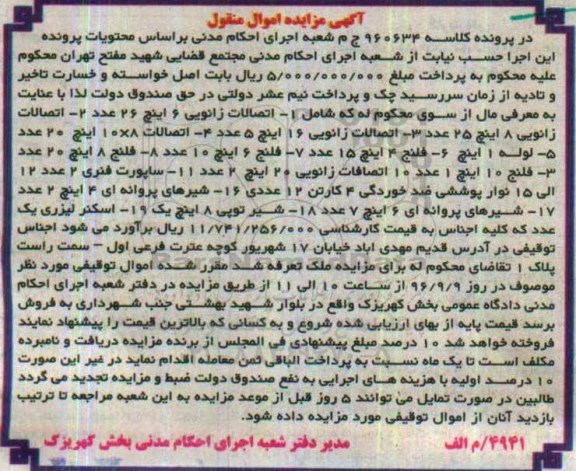 آگهی مزایده اموال منقول
در پرونده کلاسه ۹۶۰۶۳۴ ج م شعبه اجرای احکام مدنی براساس محتویات پرونده
این اجرا حسب نیابت از شعبه اجرای احکام مدنی مجتمع قضایی شهید مفتح تهران محکوم
علیه محکوم به پرداخت مبلغ ۵/۰۰۰/۰۰۰/۰۰۰ ریال بابت اصل خواسته و خسارت تاخیر
و تادیه از زمان سررسید چک و پرداخت نیم عشر دولتی در حق صندوق دولت لذا با عنایت
به معرفی مال از سوی محکوم له که شامل ۱- اتصالات زانویی ۶ اینچ ۲۶ عدد ۲- اتصالات
زانویی ۸ اینچ ۲۵ عدد ۳- اتصالات زانویی ۱۶ اینچ ۵ عدد ۴- اتصالات ۸×۱۰ اینچ ۲۰ عدد
۵- لوله ۱ اینچ ۶- فلنج ۴ اینچ ۱۵ عدد ۷- فلنج ۶ اینچ ۱۰ عدد ۸- فلنج ۸ اینچ ۲۰ عدد
۳- فلنج ۱۰ اینچ ۱ عدد ۱۰ اتصافات زانویی ۲۰ اینچ ۲ عدد ۱۱- ساپورت فنری ۲ عدد ۱۲
الی ۱۵ نوار پوششی ضد خوردگی ۴ کارتن ۱۲ عددی ۱۶- شیرهای پروانه ای ۴ اینچ ۲ عدد
۱۷- شیرهای پروانه ای ۶ اینچ ۷ عدد ۱۸- شیر توپی ۸ اینچ یک ۱۹- اسکنر لیزری یک
عدد که کلیه اجناس به قیمت کارشناسی ۱۱/۷۴۱/۲۵۶/۰۰۰ ریال برآورد می شود اجناس
توقیفی در آدرس قدیم مهدی اباد خیابان ۱۷ شهریور کوچه عترت فرعی اول - سمت راست
پلاک ۱ تقاضای محکوم له برای مزایده ملک تعرفه شد مقرر شده اموال توقیفی مورد نظر
موصوف در روز ۹۶/۹/۹ از ساعت ۱۰ الی ۱۱ از طریق مزایده در دفتر شعبه اجرای احکام
مدنی دادگاه عمومی بخش کهریزک واقع در بلوار شهید بهشتی جنب شهرداری به فروش
برسد قیمت پایه از بهای ارزیابی شده شروع و به کسانی که بالاترین قیمت را پیشنهاد نمایند
فروخته خواهد شد ۱۰ درصد مبلغ پیشنهادی فی المجلس از برنده مزایده دریافت و نامبرده
مکلف است تا یک ماه نسبت به پرداخت الباقی ثمن معامله اقدام نماید در غیر این صورت
۱۰ درصد اولیه با هزینه های اجرایی به نفع صندوق دولت ضبط و مزایده تجدید می گردد
طالبین در صورت تمایل می توانند ۵ روز قبل از موعد مزایده به این شعبه مراجعه تا ترتیب
بازدید آنان از اموال توقیفی مورد مزایده داده شود.
۴۹۴۱/م الف مدیر دفتر شعبه اجرای احکام مدنی بخش کهریزک